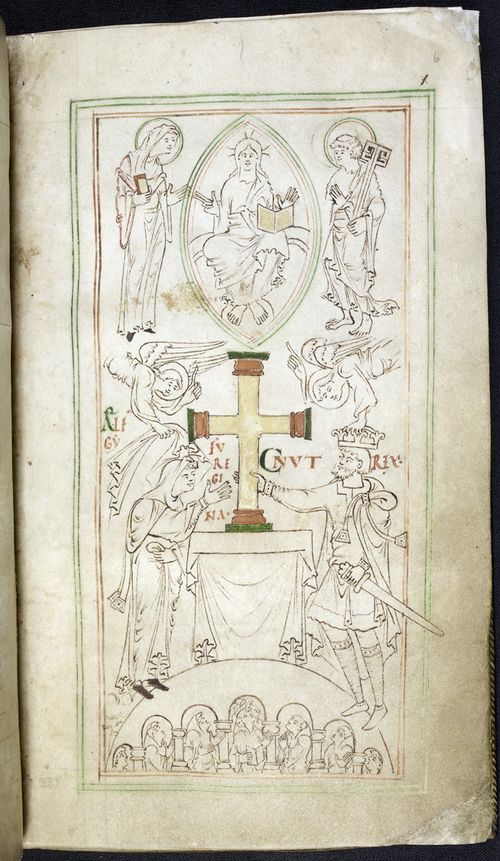 6
1
ÆLF
GY
FV
RE
GI
NA·
CNVT REX·